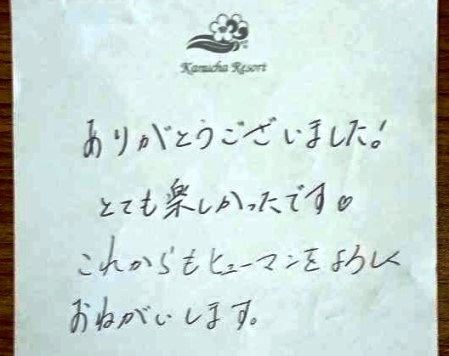 Kanucha Resort
ありがとうございました!
とても楽しかったです♡
これからもヒューマンをよろしく
おねがいします。